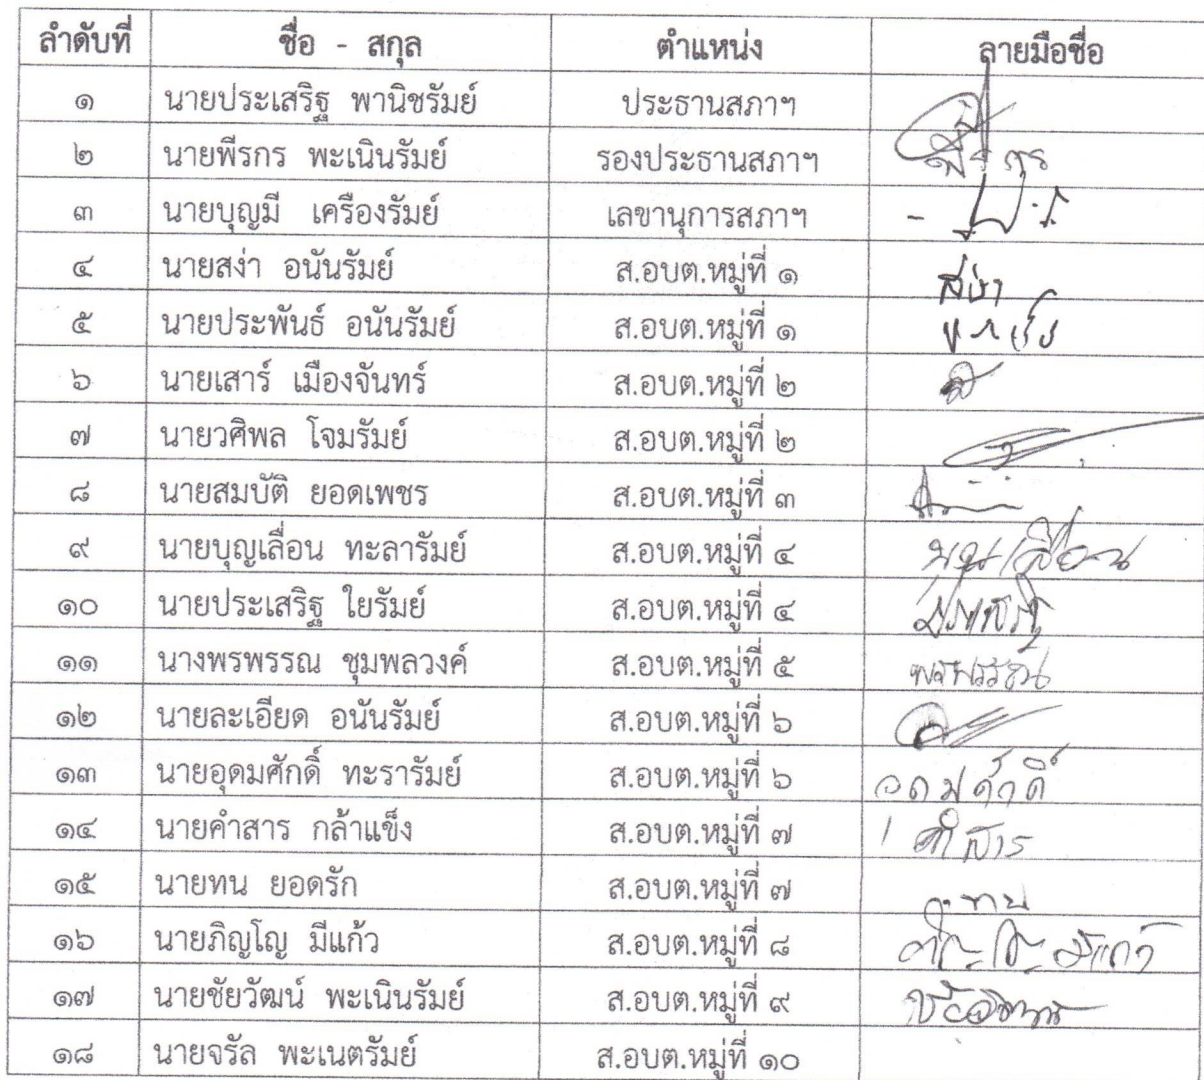 ลำดับที่ ชื่อ - สกุล ตำแหน่ง ลายมือชื่อ
๑ นายประเสริฐ พานิชรัมย์ ประธานสภาฯ
๒ นายพีรกร พะเนินรัมย์ รองประธานสภาฯ พีรกร
๓ นายบุญมี เครืองรัมย์ เลขานุการสภาฯ
๔ นายสง่า อนันรัมย์ ส.อบต.หมู่ที่ ๑ สง่า
๕ นายประพันธ์ อนันรัมย์ ส.อบต.หมู่ที่ ๑
๖ นายเสาร์ เมืองจันทร์ ส.อบต.หมู่ที่ ๒
๗ นายวศิพล โจมรัมย์ ส.อบต.หมู่ที่ ๒
๘ นายสมบัติ ยอดเพชร ส.อบต.หมู่ที่ ๓
๙ นายบุญเลื่อน ทะลารัมย์ ส.อบต.หมู่ที่ ๔ บุญเลื่อน
๑๐ นายประเสริฐ ใยรัมย์ ส.อบต.หมู่ที่ ๔
๑๑ นางพรพรรณ ชุมพลวงค์ ส.อบต.หมู่ที่ ๕ พรพรรณ
๑๒ นายละเอียด อนันรัมย์ ส.อบต.หมู่ที่ ๖
๑๓ นายอุดมศักดิ์ ทะรารัมย์ ส.อบต.หมู่ที่ ๖ อุดมศักดิ์
๑๔ นายคำสาร กล้าแข็ง ส.อบต.หมู่ที่ ๗ คำสาร
๑๕ นายทน ยอดรัก ส.อบต.หมู่ที่ ๗
๑๖ นายภิญโญ มีแก้ว ส.อบต.หมู่ที่ ๘ มีแก้ว
๑๗ นายชัยวัฒน์ พะเนินรัมย์ ส.อบต.หมู่ที่ ๙
๑๘ นายจรัล พะเนตรัมย์ ส.อบต.หมู่ที่ ๑๐